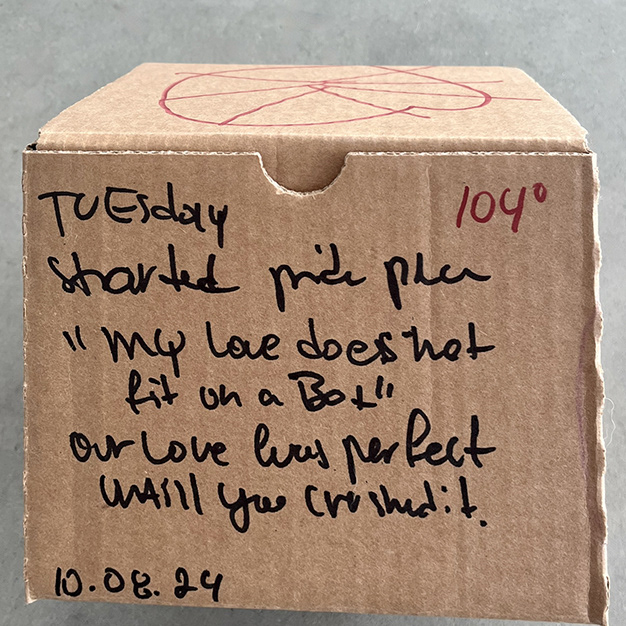 TUESday
104°
started pride plan
"my love does not
fit on a Box"
our love was perfect
untill you crushed it.
10.08.24